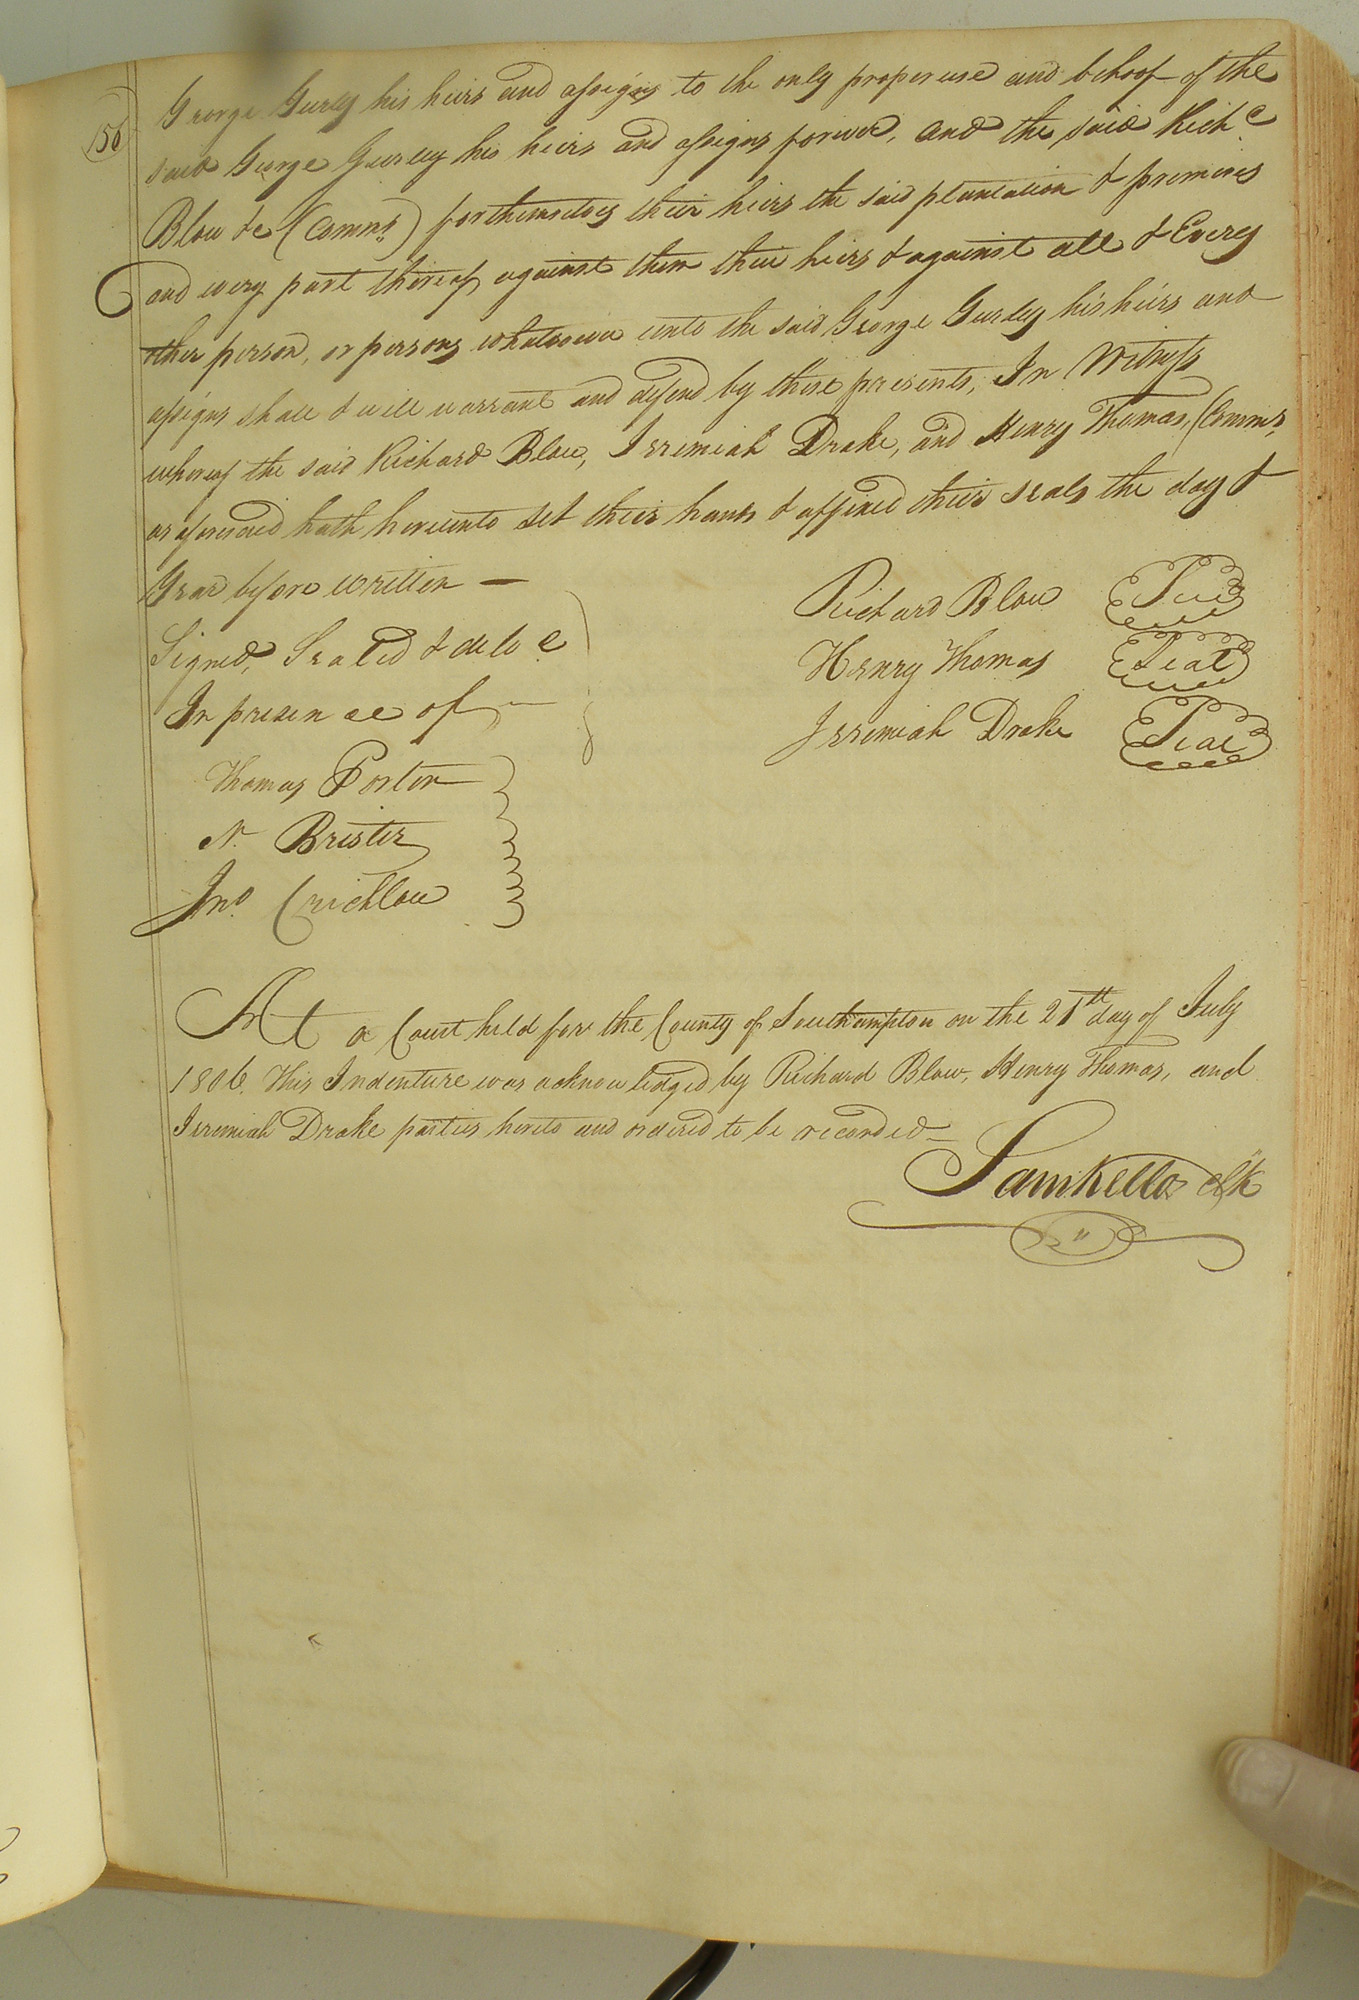 156
George Gurley his heirs and assigns to the only proper use and behoof of the
said George Gurley his heirs and assigns forever, and the said Richd
Blow &c (Commrs) for themselves their heirs the said plantation & premises
and every part thereof against them their heirs & against all & Every
other person, or persons whatsoever unto the said George Gurley his heirs and
assigns shall & will warrant and defend by these presents, In Witness
whereof the said Richard Blow, Jeremiah Drake, and Henry Thomas, (Commrs,
as aforesaid hath hereunto set their hands & affixed their seals the day &
Year before written —
Richard Blow Seal
Signed, Sealed & deld
Henry Thomas Seal
In presence of —
Jeremiah Drake Seal
Thomas Porter
N. Brister
Jno. Crichlow
At a Court held for the County of Southampton on the 21th day of July
1806. This Indenture was acknowledged by Richard Blow, Henry Thomas, and
Jeremiah Drake parties hereto and ordered to be recorded —
Sam Kello Clk